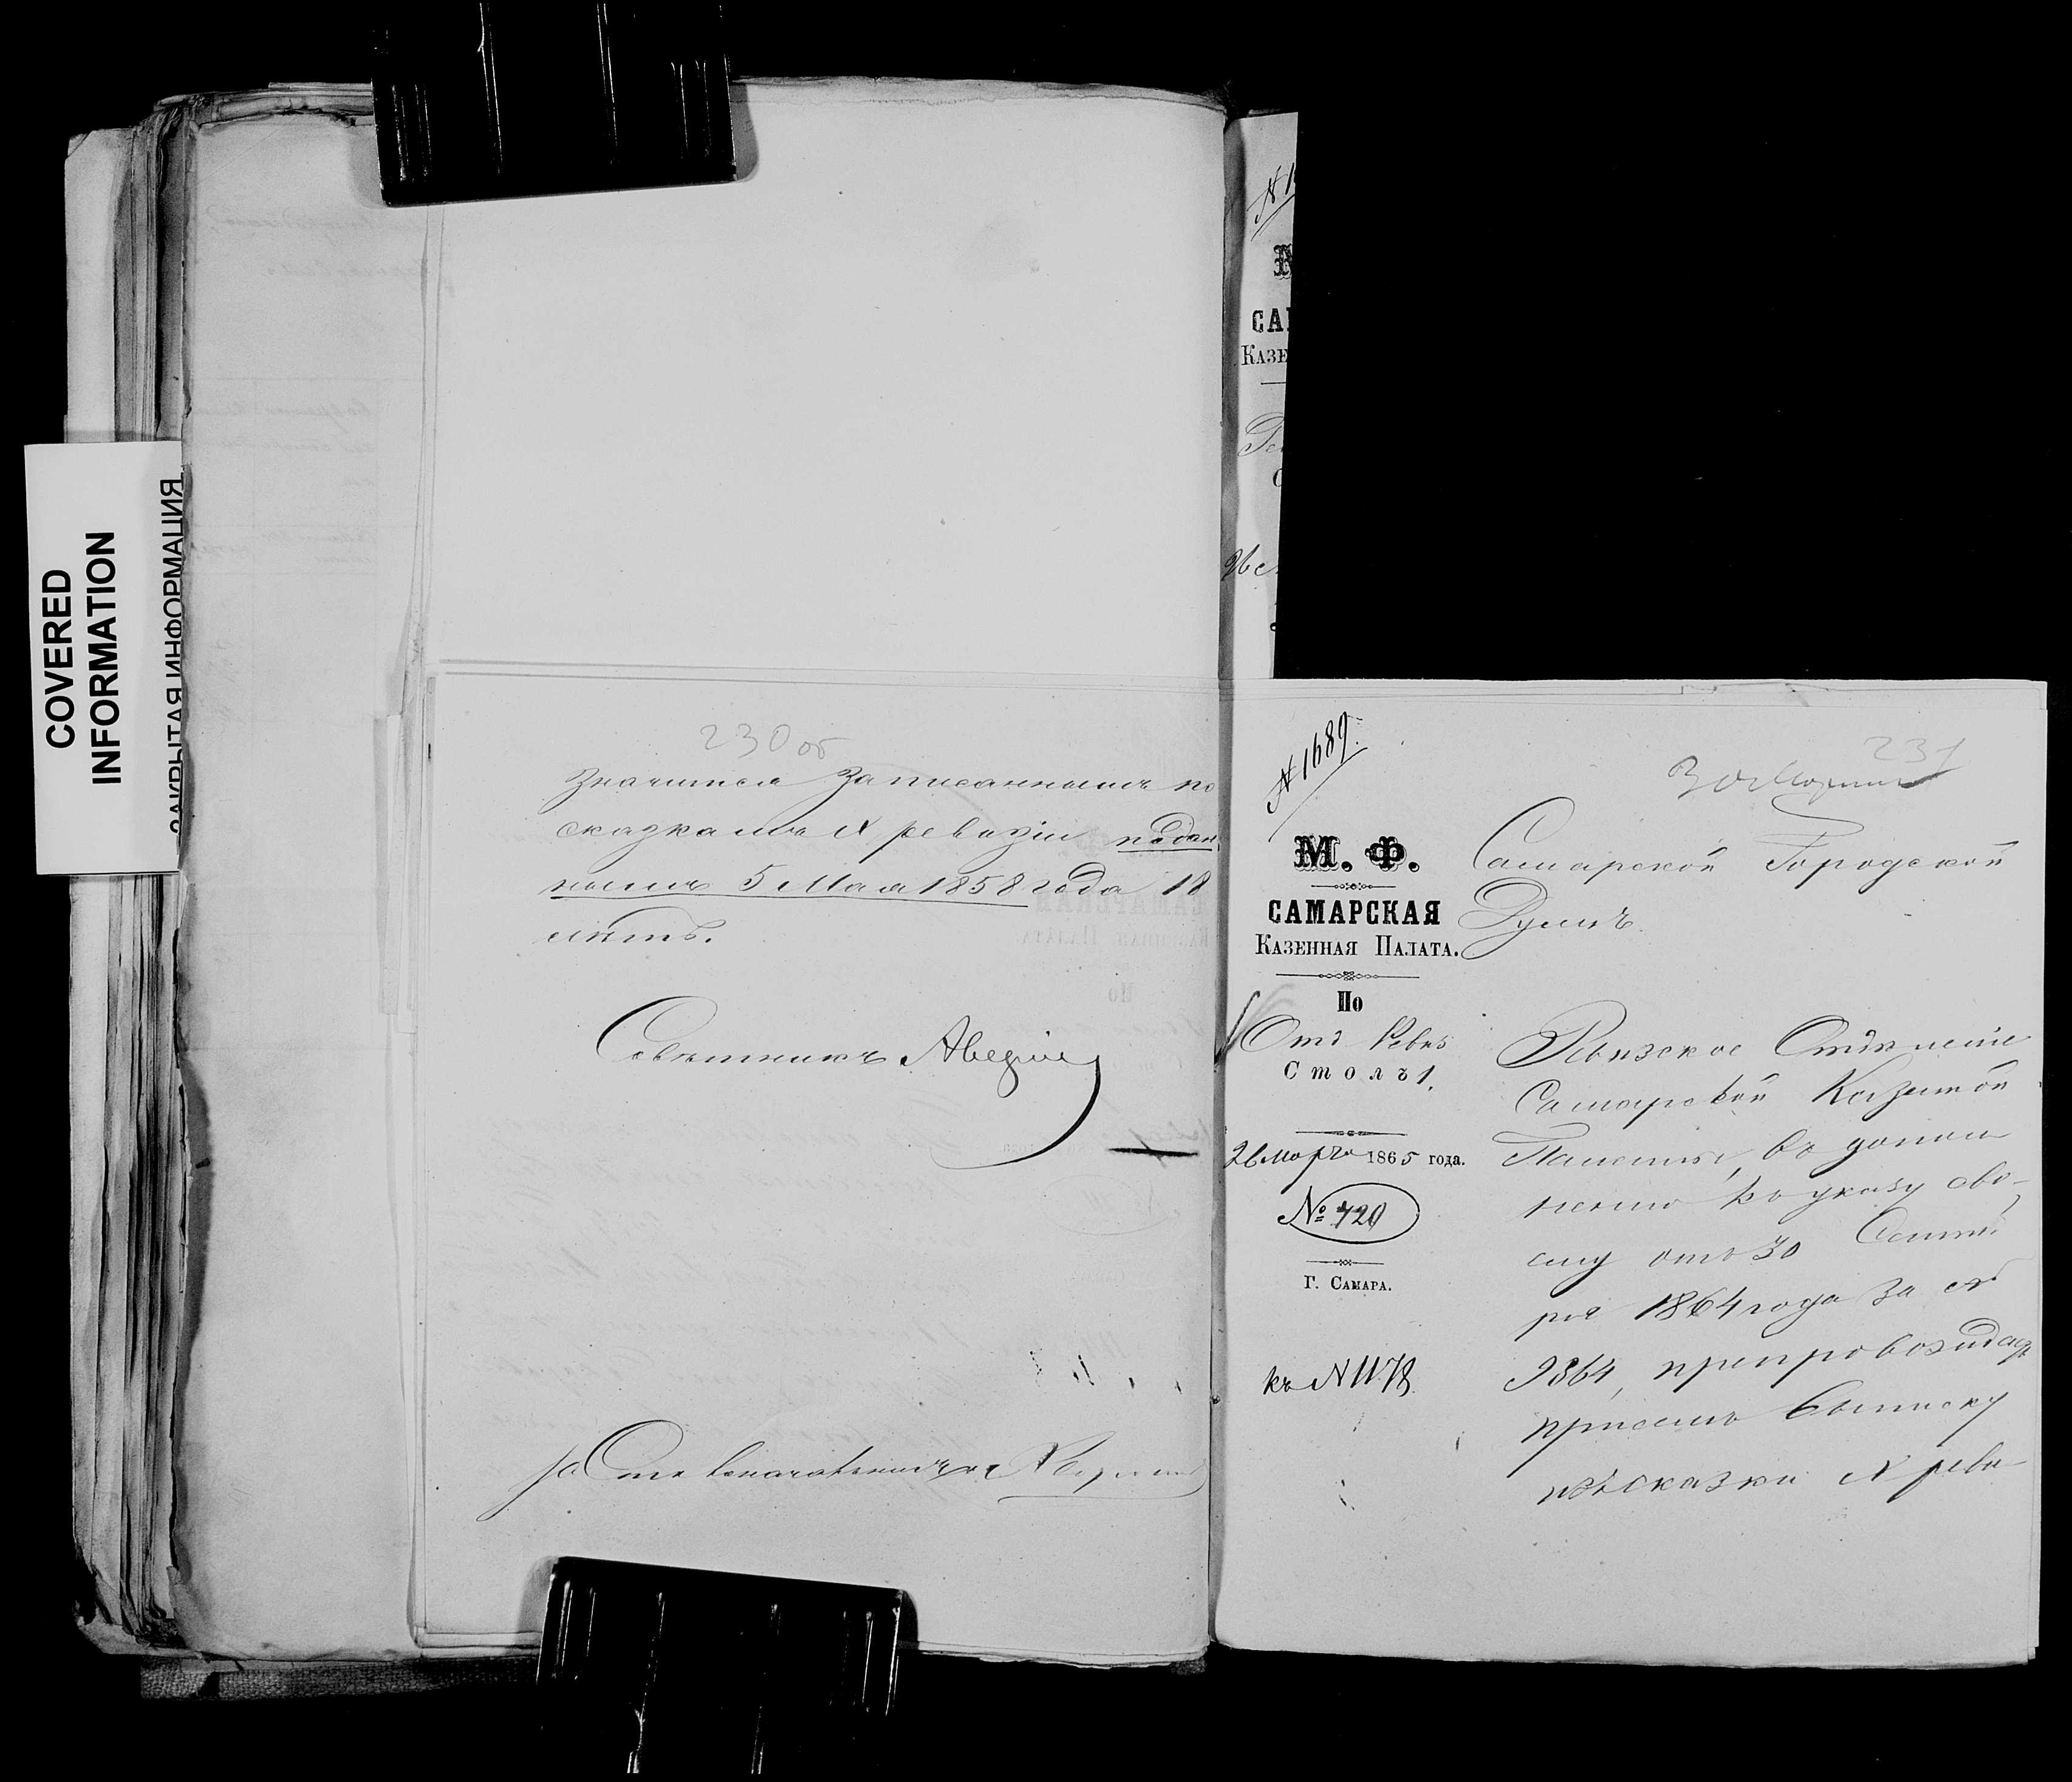 COVERED
INFORMATION
ЗАКРЫТАЯ ИНФОРМАЦИЯ
230 об
значится записаннымъ по
сказкамъ X ревизіи подан
нымъ 5 Мая 1858 года 18
лѣтъ.
Совѣтникъ
за Столоначальника
САМ
КАЗЕ
N 1689.
231
30 Марта
М. Ф.
САМАРСКАЯ
КАЗЕННАЯ ПАЛАТА.
По
Отд Ревиз
Столъ 1.
26 Марта 1865 года.
№ 720
Г. САМАРА.
къ N 1178
Самарской Городской
Думѣ.
Ревизское Отдѣленіе
Самарской Казенной
Палаты, въ допол
неніе къ указу сво-
ему отъ 30 Сентяб
ря 1864 года за №
9364, препровождаетъ
при семъ выписку
изъ сказки X реви-